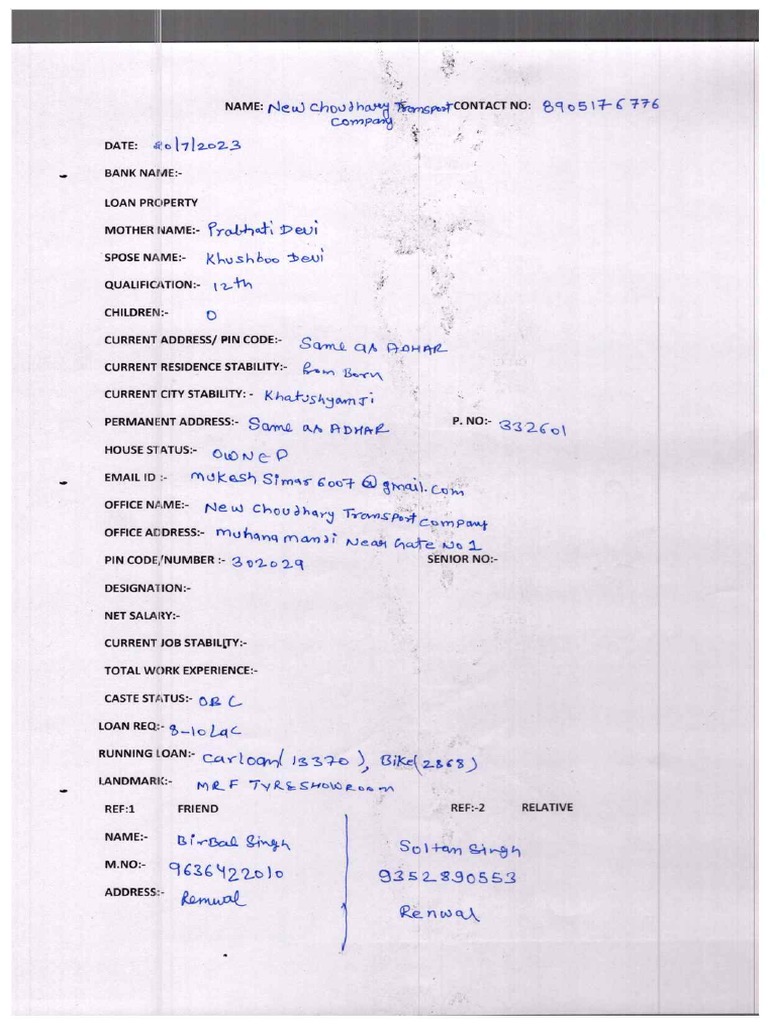 NAME: New Choudhary Transport CONTACT NO: 8905176776
Company
DATE: 20/7/2023
BANK NAME:-
LOAN PROPERTY
MOTHER NAME:- Prabhati Devi
SPOSE NAME:- Khushboo Devi
QUALIFICATION:- 12th
CHILDREN:- 0
CURRENT ADDRESS/ PIN CODE:- Same as ADHAR
CURRENT RESIDENCE STABILITY:- from Born
CURRENT CITY STABILITY: - Khatushyamji
PERMANENT ADDRESS:- Same as ADHAR P. NO:- 332601
HOUSE STATUS:- OWNED
EMAIL ID :- mukesh Simar6007@gmail.com
OFFICE NAME:- New Choudhary Transport Company
OFFICE ADDRESS:- muhana mandi Near Gate No 1
PIN CODE/NUMBER :- 302029 SENIOR NO:-
DESIGNATION:-
NET SALARY:-
CURRENT JOB STABILTY:-
TOTAL WORK EXPERIENCE:-
CASTE STATUS:- OBC
LOAN REQ:- 8-10 Lac
RUNNING LOAN:- Carloan(13370), Bike(2868)
LANDMARK:- MRF TYRE SHOWROOM
REF:1 FRIEND REF:-2 RELATIVE
NAME:- Birbal Singh Soltan Singh
M.NO:- 9636422010 9352890553
ADDRESS:- Renwal Renwal